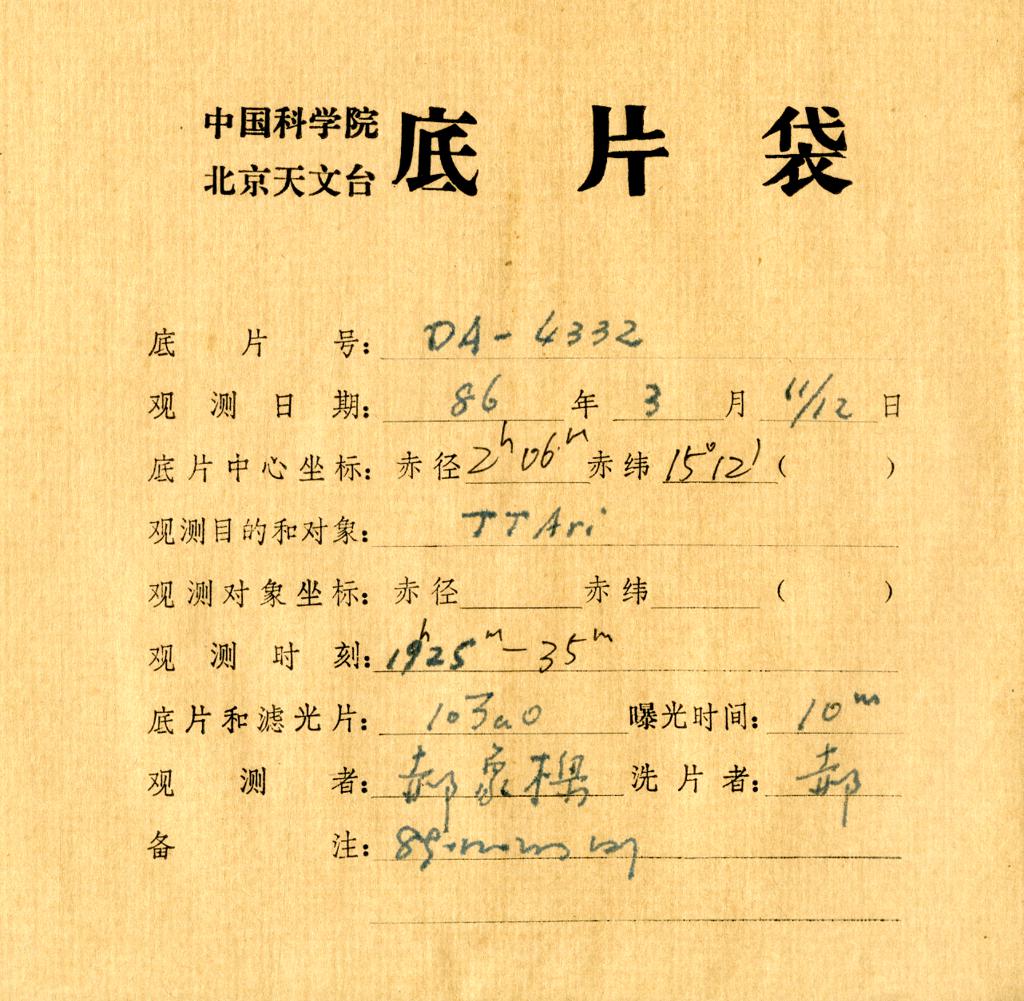 中国科学院
北京天文台
底片袋
底片号: DA-4332
观测日期: 86 年 3 月 11/12 日
底片中心坐标: 赤径 2h06m 赤纬 15°12' ( )
观测目的和对象: TT Ari
观测对象坐标: 赤径 赤纬 ( )
观测时刻: 19h25m-35m
底片和滤光片: 103aO 曝光时间: 10m
观测者: 郝象樑 洗片者: 郝
备注: